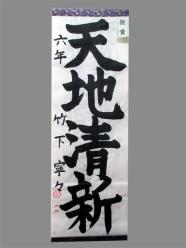 天地清新
六年 竹下寧々
銀賞